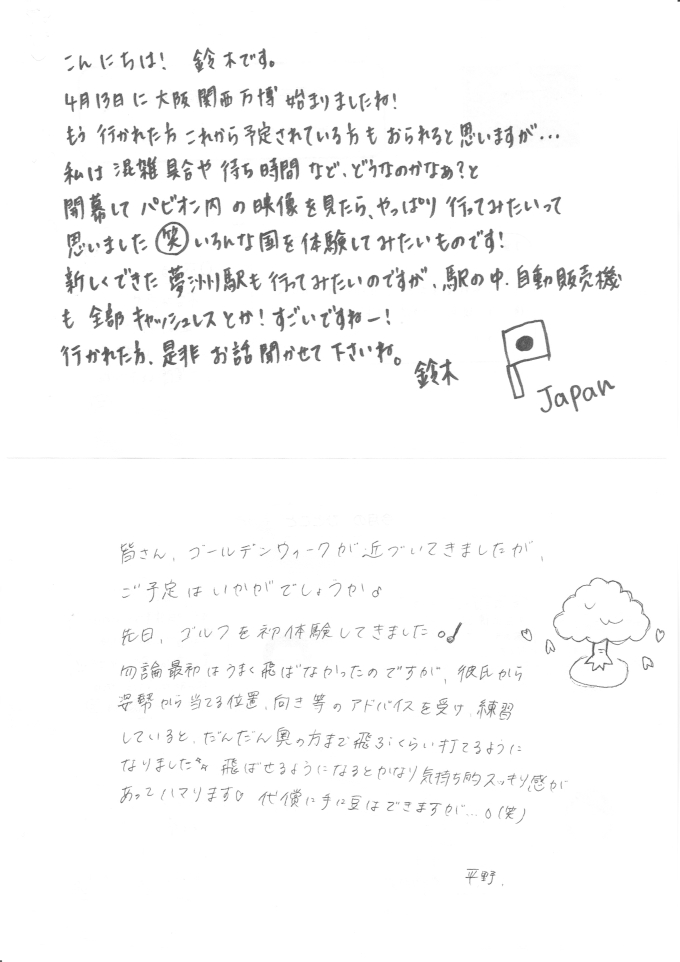 こんにちは! 鈴木です。
4月13日に大阪関西万博始まりましたね!
もう行かれた方これから予定されている方もおられると思いますが…
私は混雑具合や待ち時間など、どうなのかなぁ?と
開幕してパビオン内の映像を見たら、やっぱり行ってみたいって
思いました(笑)いろんな国を体験してみたいものです!
新しくできた夢洲駅も行ってみたいのですが、駅の中、自動販売機
も全部キャッシュレスとか!すごいですねー!
行かれた方、是非お話聞かせて下さいね。
鈴木
Japan
皆さん、ゴールデンウィークが近づいてきましたが、
ご予定はいかがでしょうか♪
先日、ゴルフを初体験してきました。!
勿論最初はうまく飛ばなかったのですが、彼氏から
姿勢から当てる位置、向き等のアドバイスを受け、練習
していると、だんだん奥の方まで飛ぶくらい打てるように
なりました 飛ばせるようになるとかなり気持ち的スッキリ感が
あってハマります♡ 代償に手に豆はできますが…(笑)
平野.